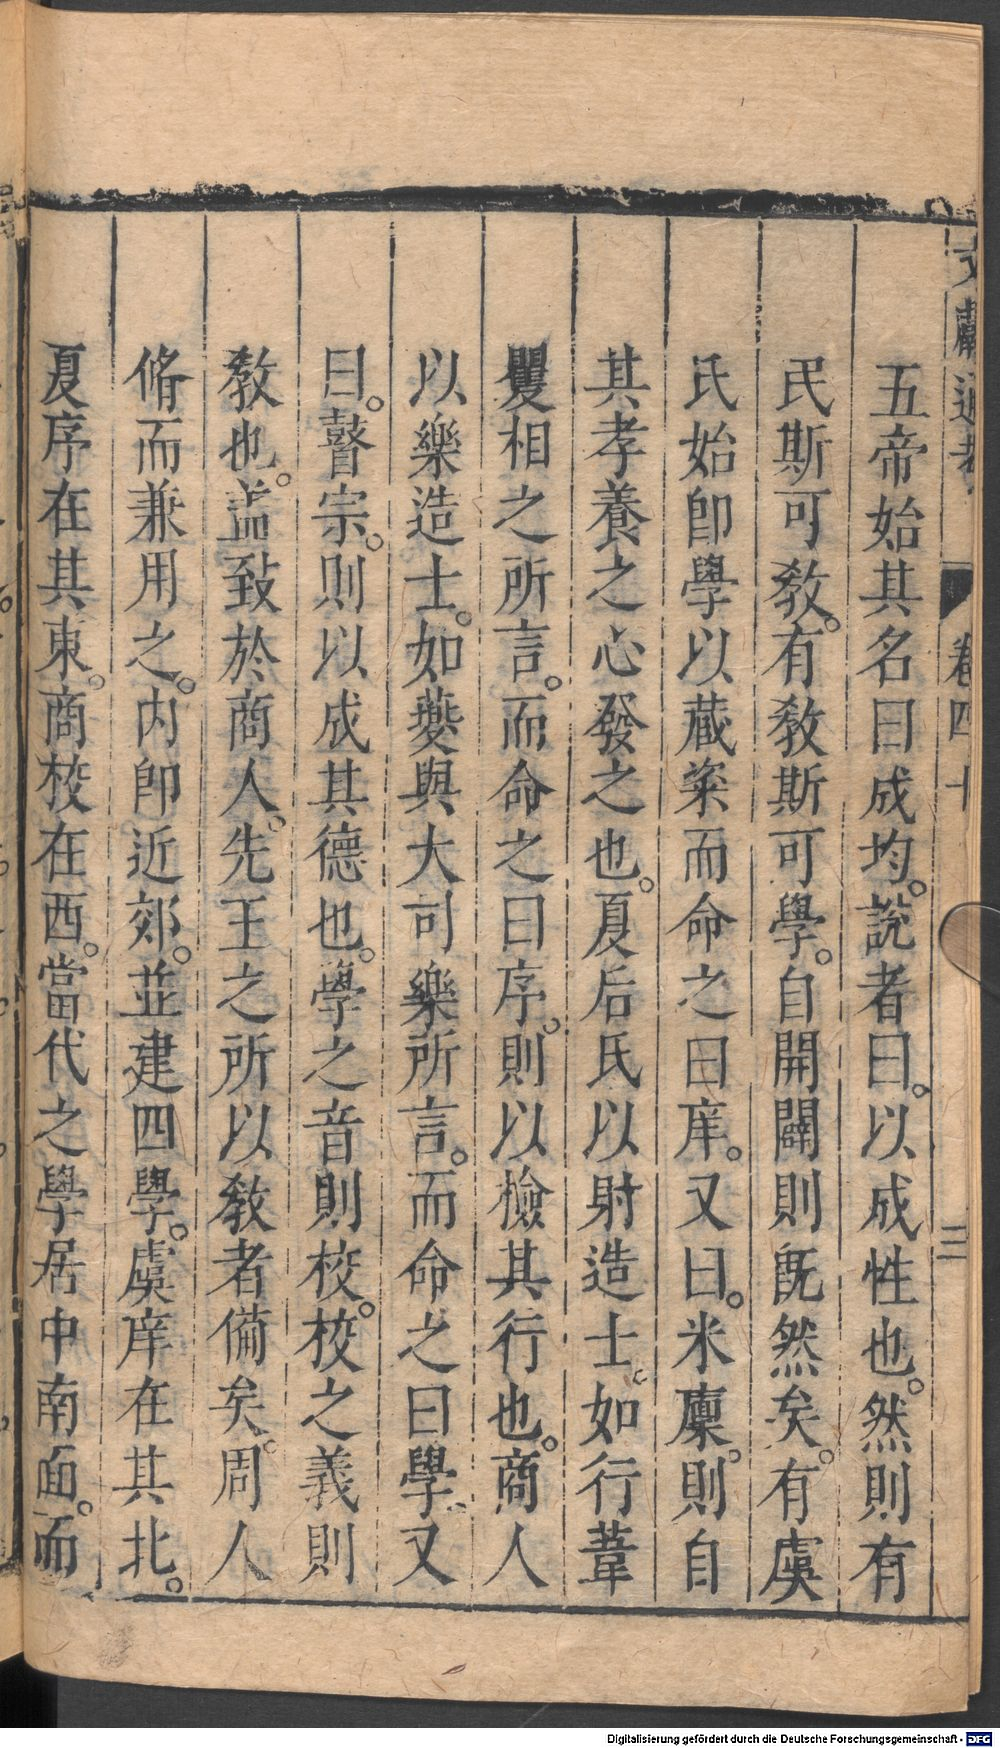 文獻通考 卷四十 三
五帝始其名曰成均。說者曰。以成性也。然則有
民斯可敎。有敎斯可學。自開闢則旣然矣。有虞
氏始卽學以藏粢而命之曰庠。又曰。米廩。則自
其孝養之心發之也。夏后氏以射造士。如行葦
矍相之所言。而命之曰序。則以檢其行也。商人
以樂造士。如夔與大司樂所言。而命之曰學、又
曰。瞽宗。則以成其德也。學之音則校。校之義則
敎也。盖致於商人。先王之所以敎者備矣。周人
脩而兼用之。內卽近郊。並建四學。虞庠在其北。
夏序在其東。商校在西。當代之學居中南面。而
Digitalisierung gefördert durch die Deutsche Forschungsgemeinschaft - DFG